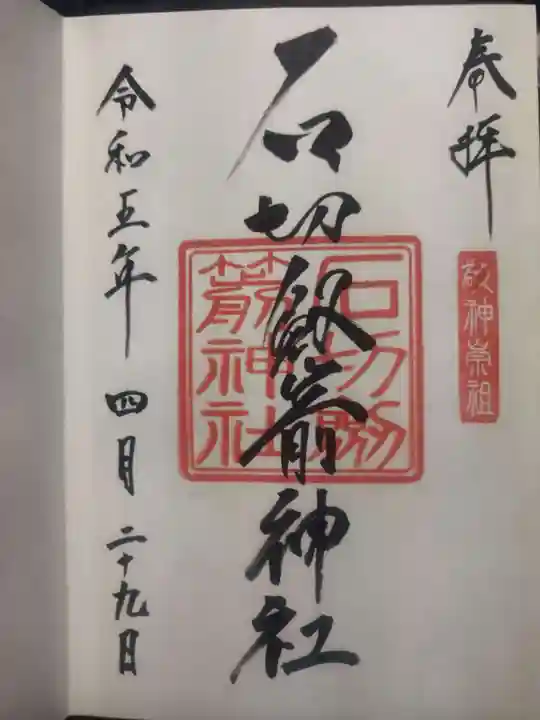 奉拝
敬神崇祖
石切劔箭神社
石切劔
箭神社
令和五年四月二十九日